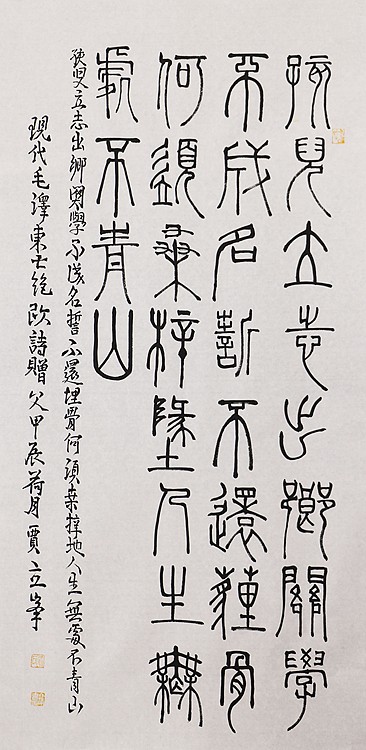 孩兒立志出鄉關學
不成名誓不還薶骨
何須桑梓墬人生無
處不青山
孩兒立志出鄉關學不成名誓不還埋骨何須桑梓地人生無處不青山
現代毛澤東七絕改詩贈父甲辰荷月賈立峯